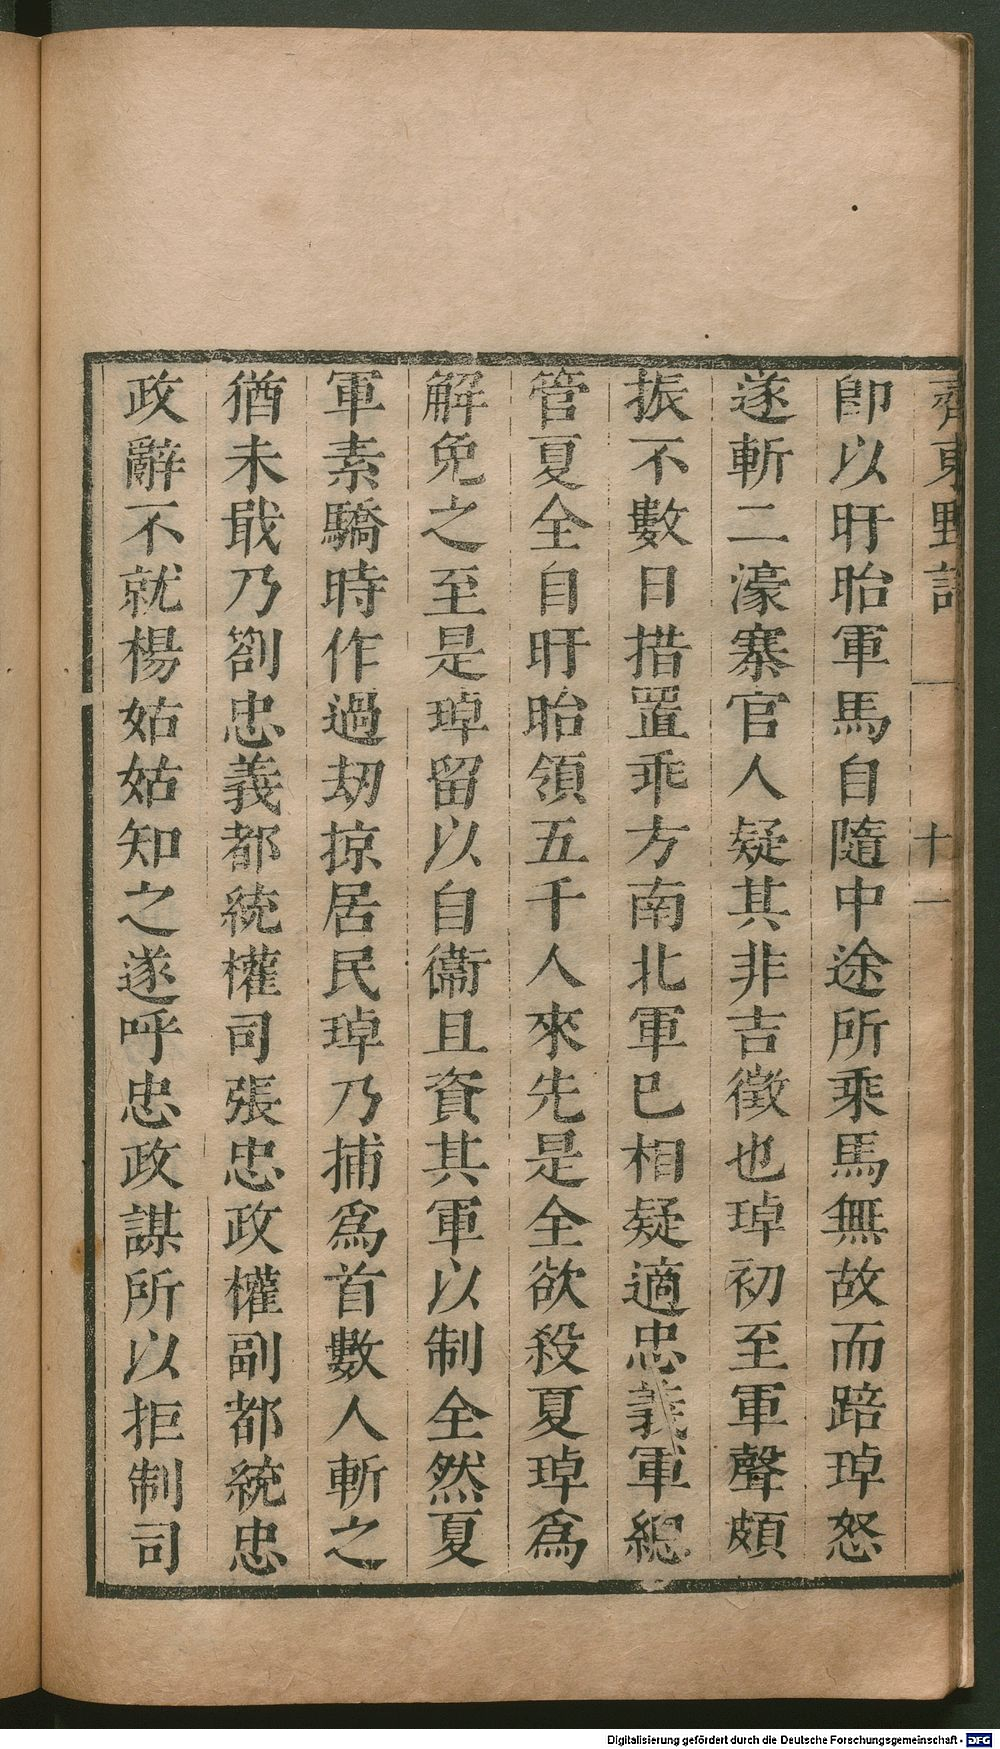 齊東野語
十一
卽以盱眙軍馬自隨中途所乘馬無故而踣琸怒
遂斬二濠寨官人疑其非吉徵也琸初至軍聲頗
振不數日措置乖方南北軍已相疑適忠義軍總
管夏全自盱眙領五千人來先是全欲殺夏琸爲
解免之至是琸留以自衞且資其軍以制全然夏
軍素驕時作過劫掠居民琸乃捕爲首數人斬之
猶未戢乃劄忠義都統權司張忠政權副都統忠
政辭不就楊姑姑知之遂呼忠政謀所以拒制司
Digitalisierung gefördert durch die Deutsche Forschungsgemeinschaft - DFG